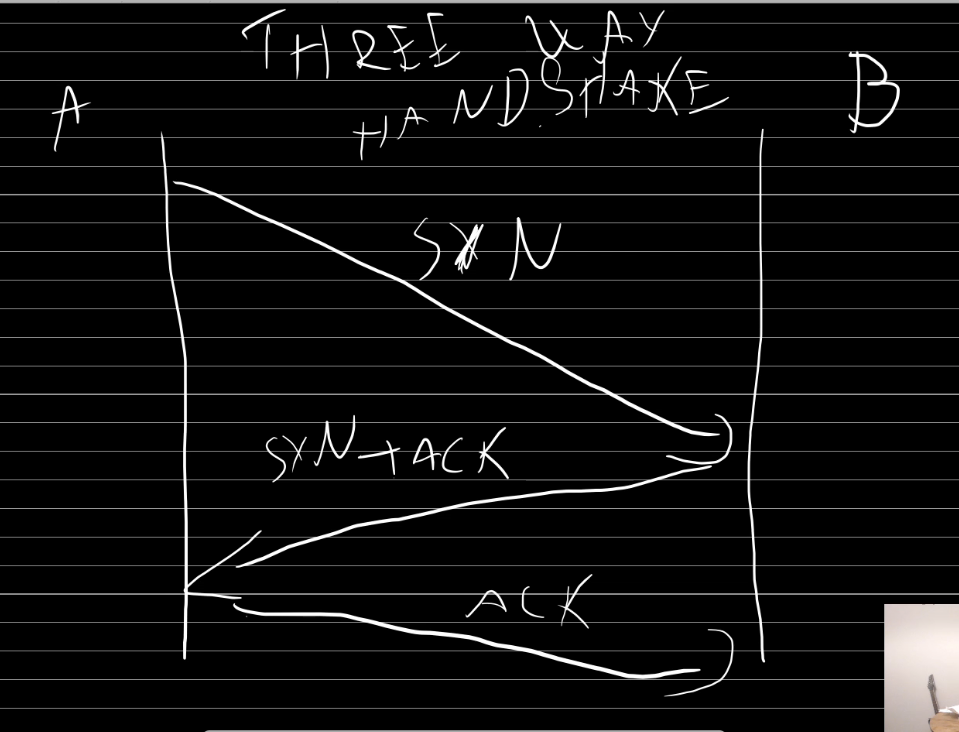 THREE WAY
HANDSHAKE
A
B
SYN
SYN+ACK
ACK